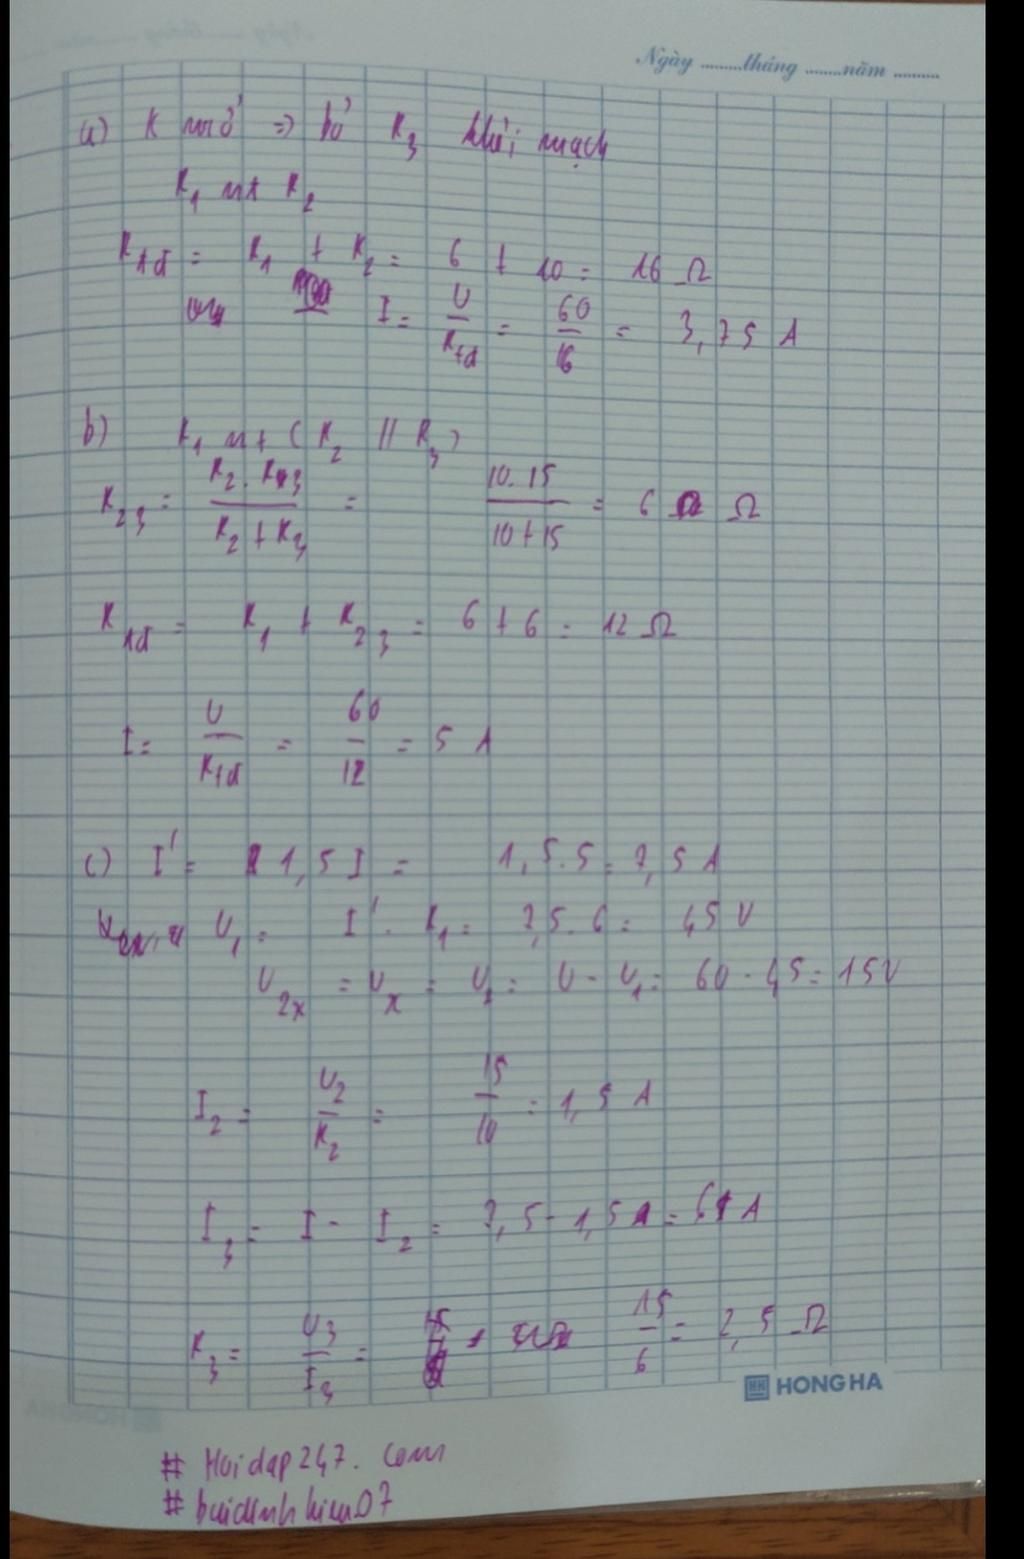 Ngày ........tháng .......năm .........
a) K mở => bỏ R3 khỏi mạch
R1 nt R2
Rtđ = R1 + R2 = 6 + 10 = 16 Ω
I = U/Rtđ = 60/16 = 3,75 A
b) R1 nt (R2 // R3)
R23 = R2.R3/R2+R3 = 10.15/10+15 = 6 Ω
Rtđ = R1 + R23 = 6 + 6 = 12 Ω
I = U/Rtđ = 60/12 = 5 A
c) I' = 1,5 I = 1,5.5 = 7,5 A
U1 = I'. R1 = 7,5.6 = 45 V
U2x = Ux = U2 = U - U1 = 60 - 45 = 15V
I2 = U2/R2 = 15/10 = 1,5 A
I3 = I - I2 = 7,5 - 1,5 = 6 A
R3 = U3/I3 = 15/6 = 2,5 Ω
HONG HA
# Hoidap247. com
# buidinhhieu07